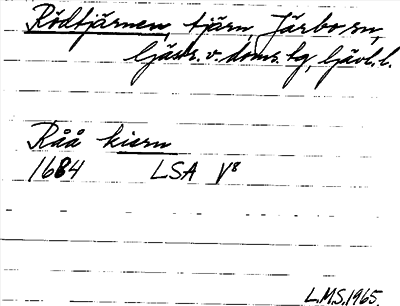 Rödtjärnen, tjärn, Järbo sn,
Gästr. v. doms. tg, Gävl. l.
Råå kiern
1684 LSA V8
L.M.S. 1965.